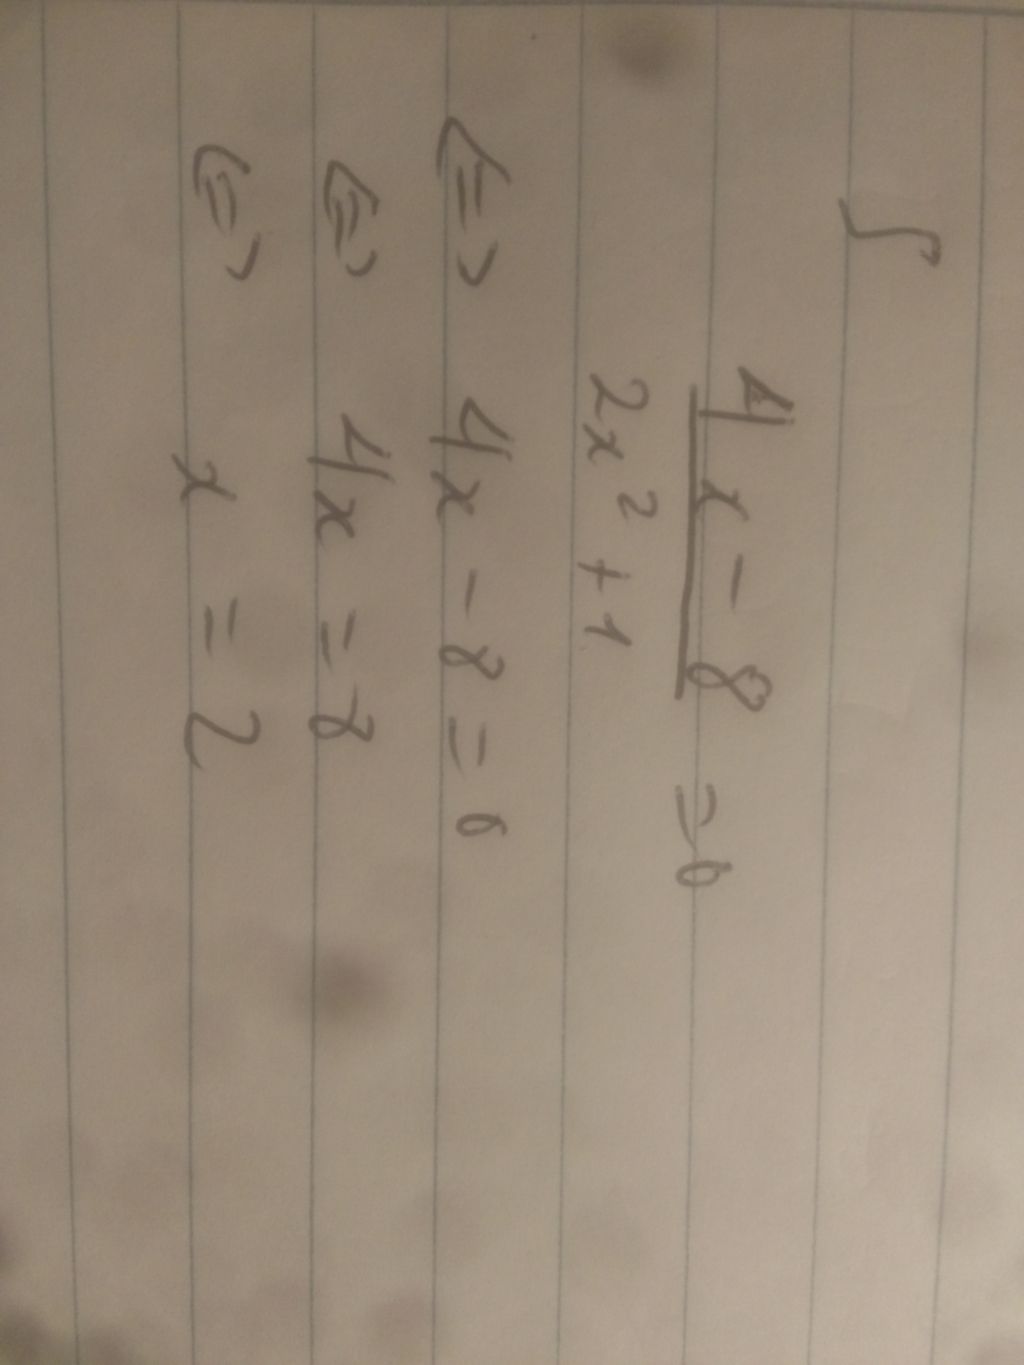 ∫
4x - 8
2x² + 1 = 0
<=> 4x - 8 = 0
<=> 4x = 8
<=> x = 2